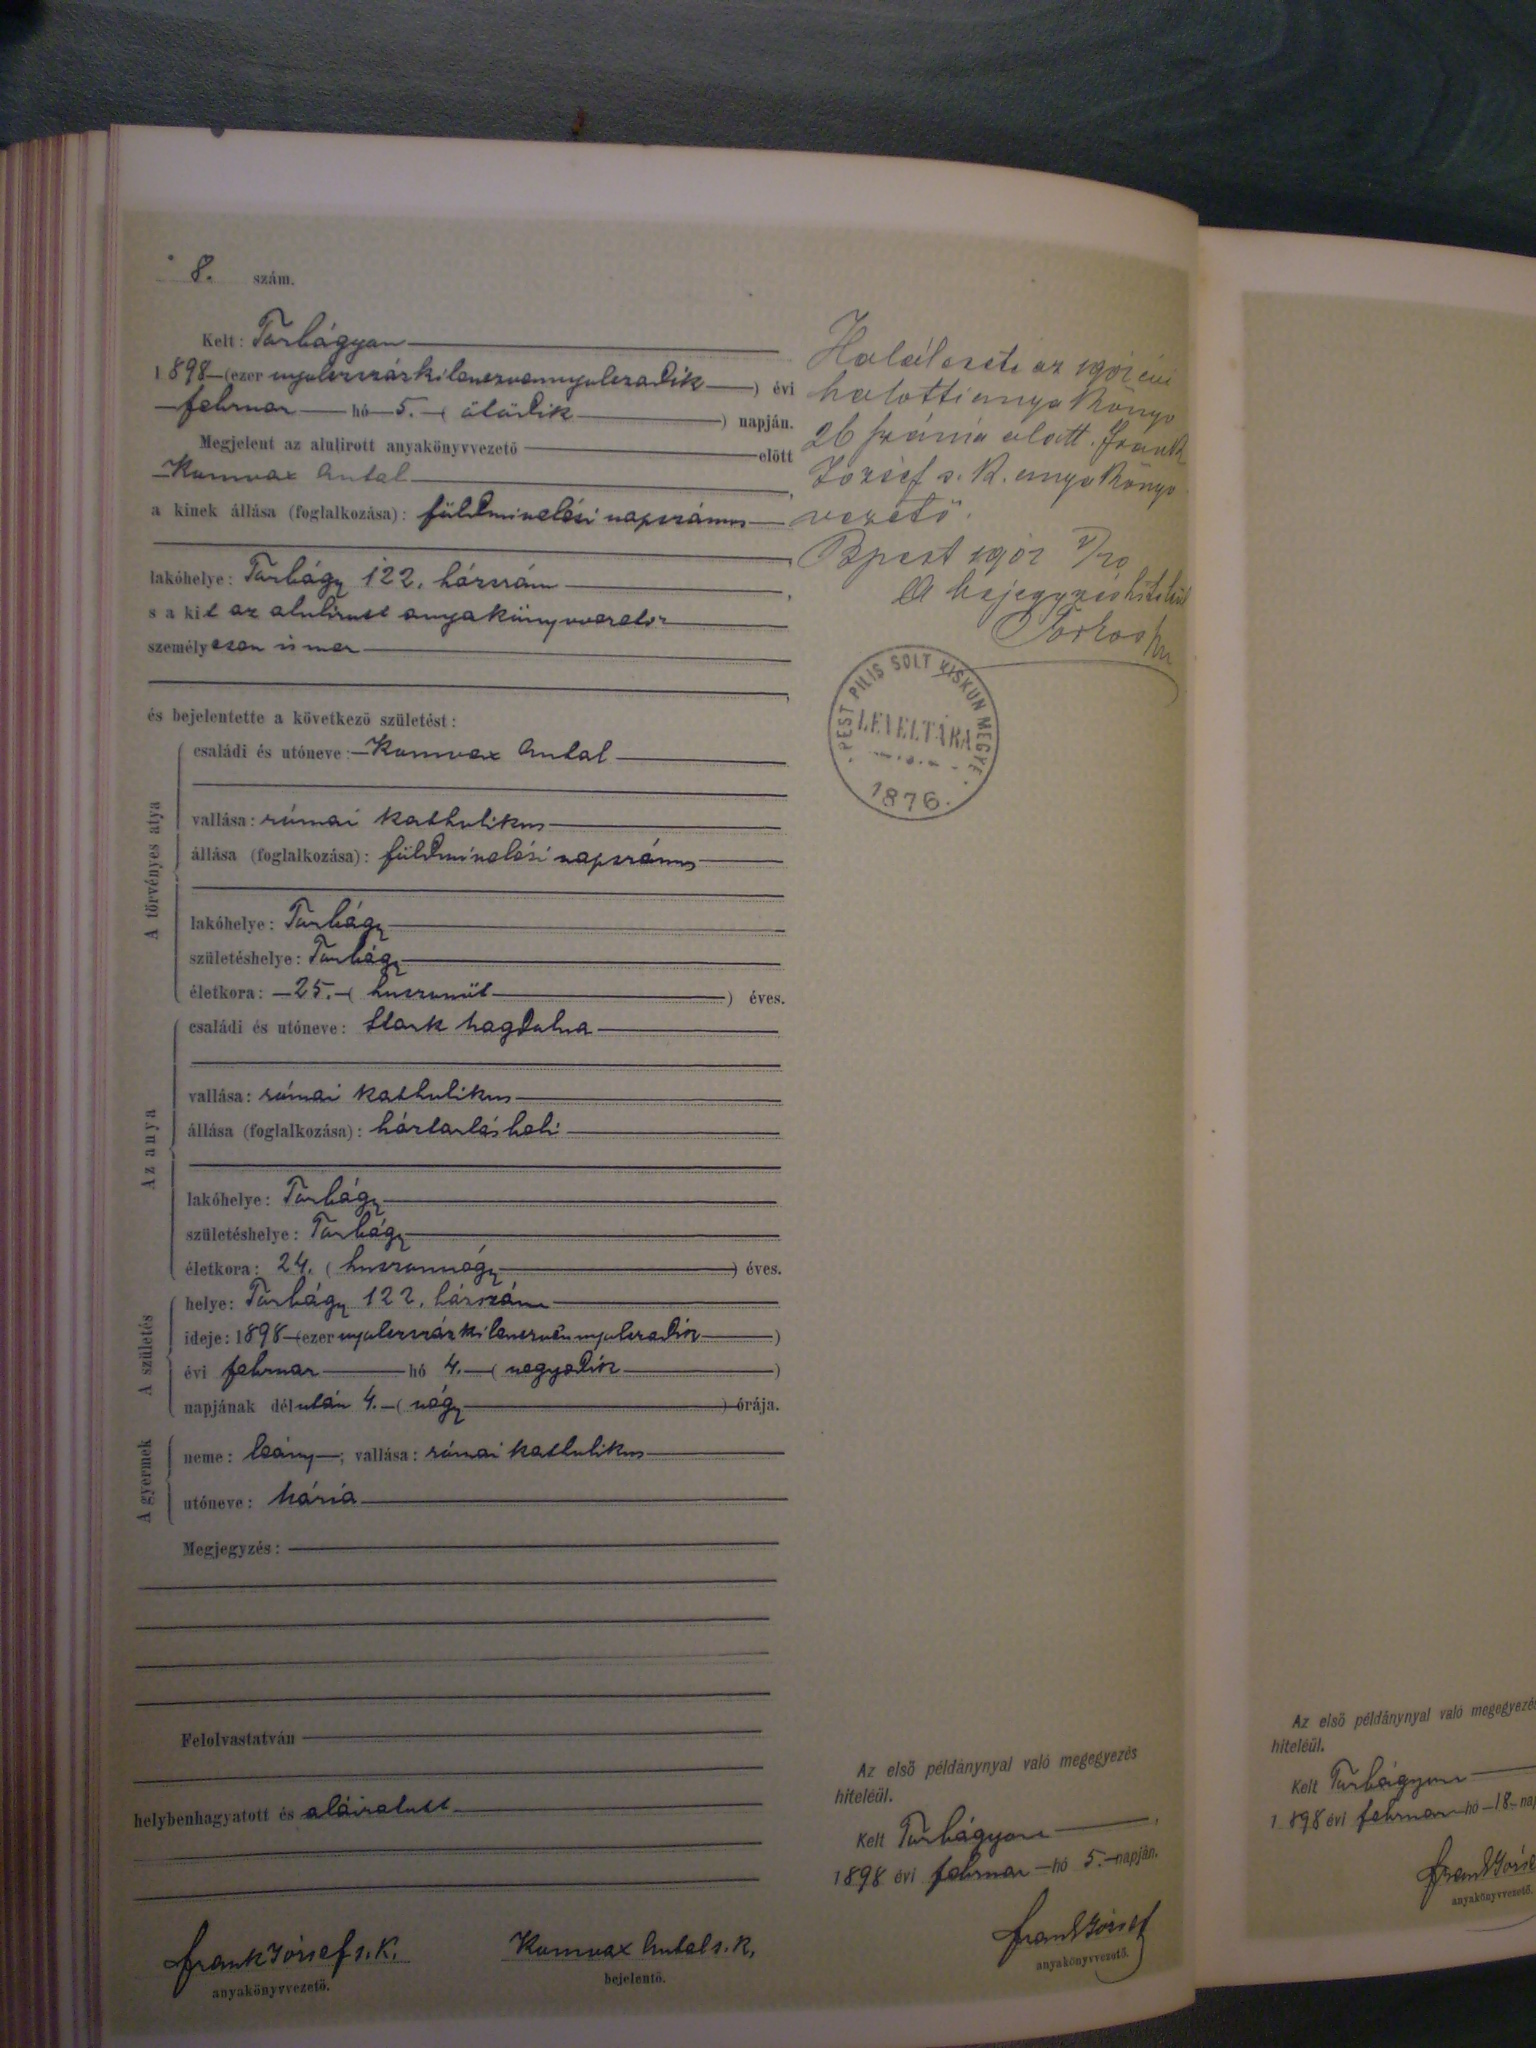 8. szám.
Kelt: Torbágyon
1898 (ezer nyolczszázkilenczvennyolczadik) évi
februar hó 5. (ötödik) napján.
Megjelent az alulirott anyakönyvvezető előtt
Komvax Antal,
a kinek állása (foglalkozása): földmivelési napszámos
lakóhelye: Torbágy 122. házszám,
s a kit az alulirott anyakönyvvezető
személyesen ismer
és bejelentette a következő születést:
A törvényes atya
családi és utóneve: Komvax Antal
vallása: római katholikus
állása (foglalkozása): földmivelési napszámos
lakóhelye: Torbágy
születéshelye: Torbágy
életkora: 25. (huszonöt) éves.
Az anya
családi és utóneve: Stark Magdolna
vallása: római katholikus
állása (foglalkozása): háztartásbeli
lakóhelye: Torbágy
születéshelye: Torbágy
életkora: 24. (huszonnégy) éves.
A születés
helye: Torbágy 122. házszám
ideje: 1898 (ezer nyolczszázkilenczvennyolczadik)
évi februar hó 4. (negyedik)
napjának délután 4. (négy) órája.
A gyermek
neme: leány; vallása: római katholikus
utóneve: Mária
Megjegyzés:
Felolvastatván
helybenhagyatott és aláiratott
Frank József s. k.
anyakönyvvezető.
Komvax Antal s. k.
bejelentő.
Halálesete az 1901 évi
halotti anyakönyv
26 száma alatt. Frank
József s. k. anyakönyv
vezető.
Bpest 1901
A bejegyzés hiteléül
PEST PILIS SOLT KISKUN MEGYE
LEVELTÁRA
1876.
Az első példánynyal való megegyezés
hiteléül.
Kelt Torbágyon,
1898 évi februar hó 5. napján.
Frank József
anyakönyvvezető.
Az első példánynyal való megegyezés
hiteléül.
Kelt Torbágyon
1898 évi februar hó 18.
Frank
anyakönyvvezető.